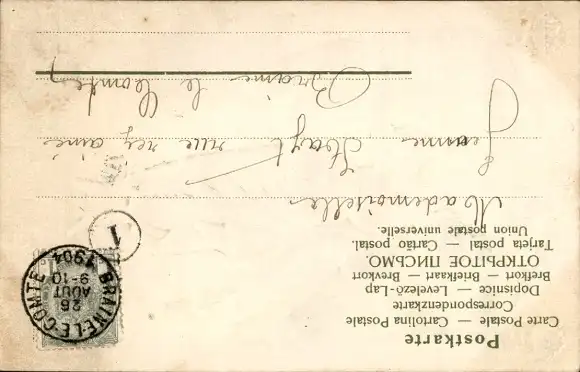 Postkarte
Carte Postale — Cartolina Postale
Correspondenzkarte
Dopisnice — Levelező-Lap
Brefkort — Briefkaart — Brevkort
ОТКРЫТОЕ ПИСЬМО.
Tarjeta postal — Cartão postal.
Union postale universelle.
BRAINE-LE-COMTE
26
AOUT
9-10
1904
1
Mademoiselle
Jeanne rue
Braine le Comte